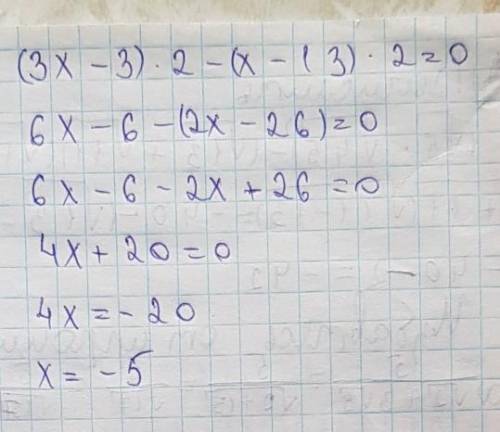 (3x - 3) · 2 - (x - 13) · 2 = 0
6x - 6 - (2x - 26) = 0
6x - 6 - 2x + 26 = 0
4x + 20 = 0
4x = - 20
x = - 5